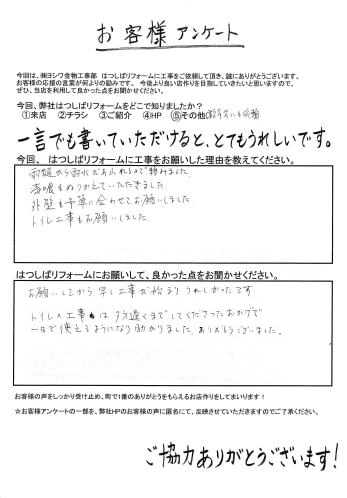 お客様アンケート
今回は、㈱ヨシワ金物工事部 はつしばリフォームに工事をご依頼して頂き、誠にありがとうございます。
お客様の応援の言葉が何よりの励みです。 今後より良い店作りを目指していきたいと思いますので、
ぜひ、当店を利用して良かった点をお聞かせください。
今回、弊社はつしばリフォームをどこで知りましたか?
①来店 ②チラシ ③ご紹介 ④HP ⑤その他(数年前にも依頼
一言でも書いていただけると、とてもうれしいです。
今回、 はつしばリフォームに工事をお願いした理由を教えてください。
雨樋から雨水があふれるので頼みました
漆喰もぬりかえていただきました
外壁も予算に合わせてお願いしました
トイレ工事もお願いしました
はつしばリフォームにお願いして、良かった点をお聞かせください。
お願いしてから早く工事が始まりうれしかったです
トイレの工事は夕方遅くまでしてくださったおかげで
一日で使えるようになり助かりました。ありがとうございました。
お客様の声をしっかり受け止め、町で1番のありがとうをもらえるお店作りをしてまいります!
☆お客様アンケートの一部を、弊社HPのお客様の声に匿名にて、反映させていただきますのでご了承ください。
ご協力ありがとうございます!